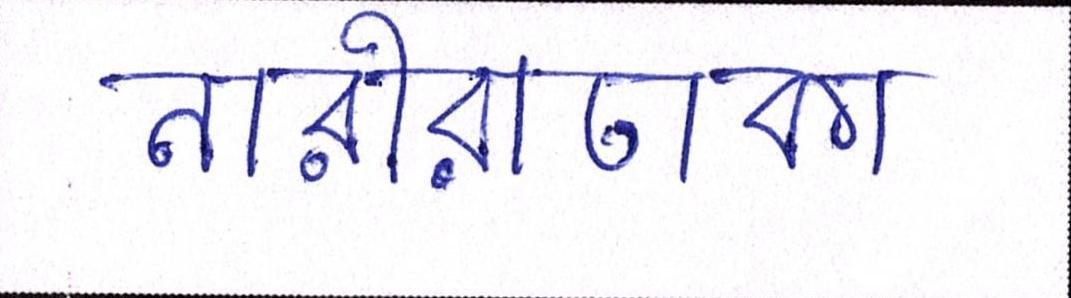 নারীরাঢাকা